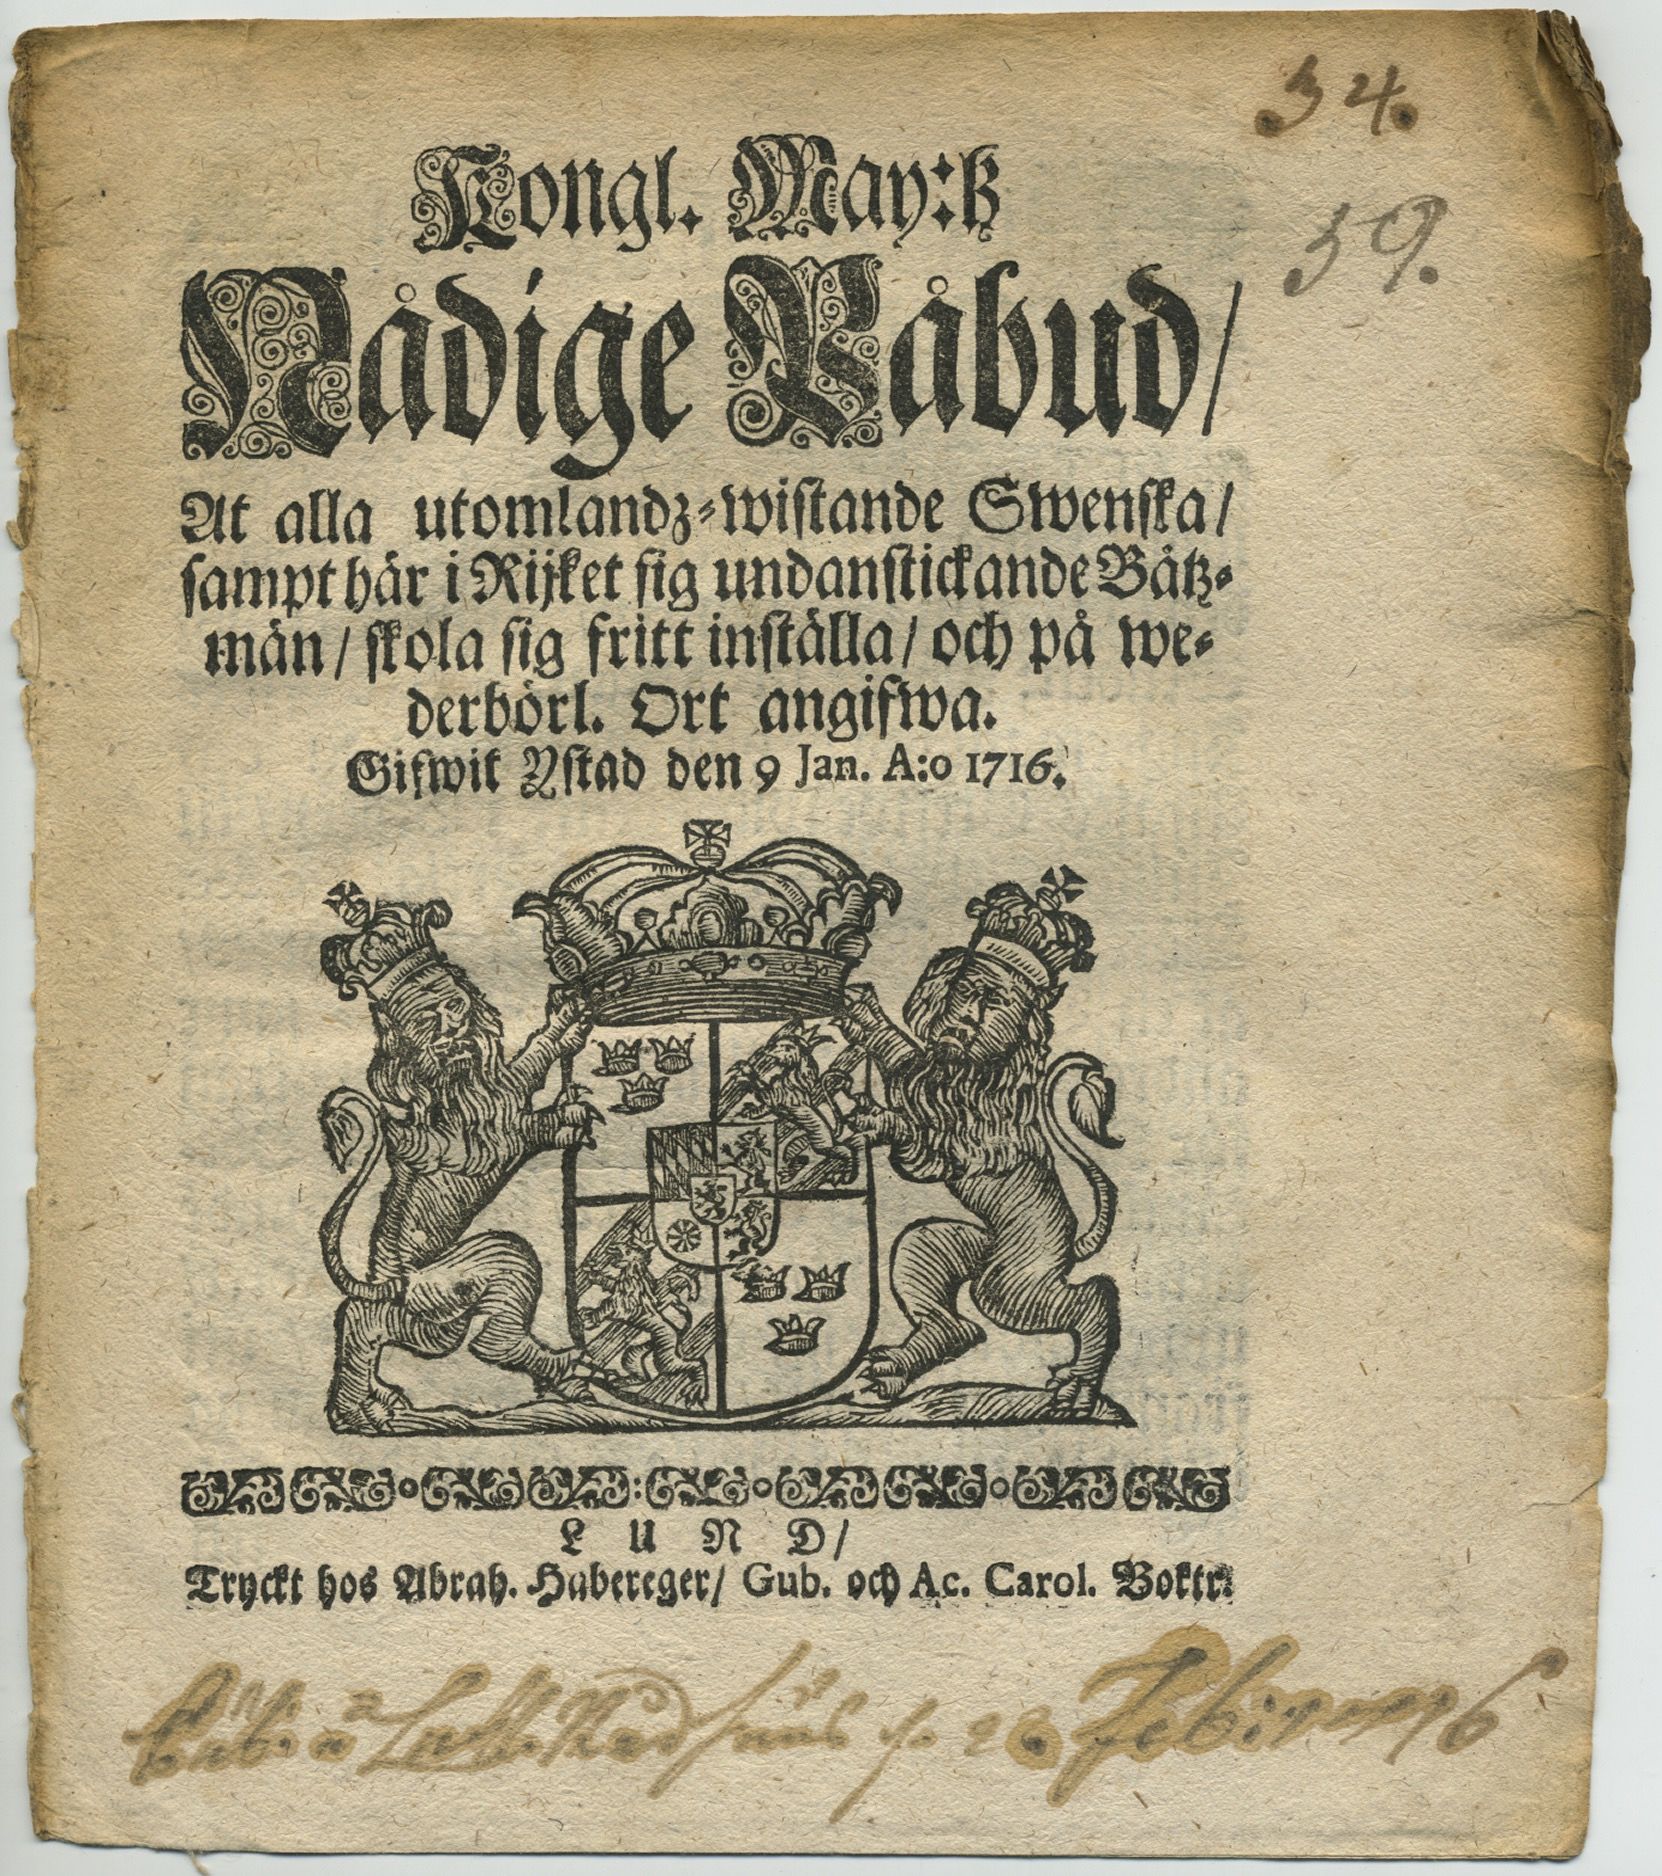 34.
Kongl. May:tz
59.
Nådige Påbud/
At alla utomlandz-wistande Swenska/
sampt här i Rijket sig undanstickande Båtz-
män/ skola sig fritt inställa/ och på we-
derbörl. Ort angifwa.
Gifwit Ystad den 9 Jan. A:o 1716.
LUND/
Tryckt hos Abrah. Habereger/ Gub. och Ac. Carol. Boktr.